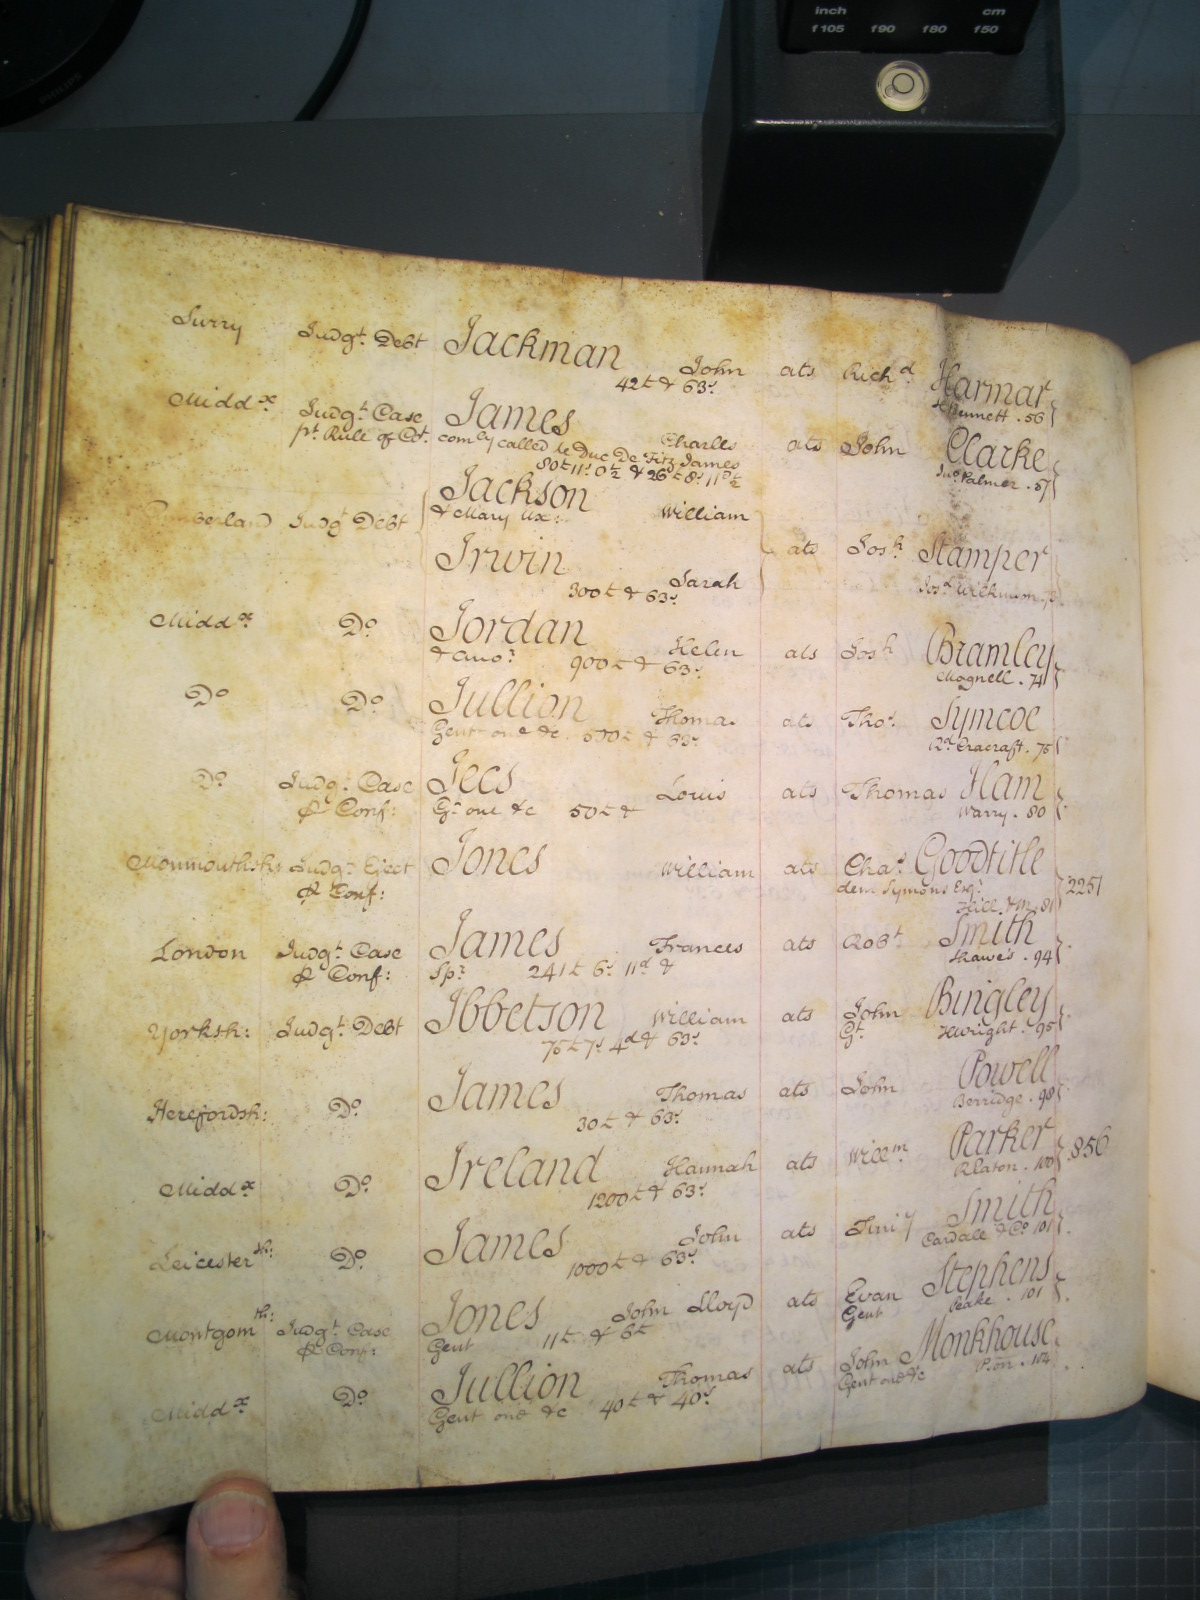 inch cm
f105 f90 f80 f50
PHILIPS
Surry Judgt. Debt Jackman John ats Richd. Harmar
42£ & 63s. Bennett . 56
Middx. Judgt. Case James Charles ats John Clarke
pt. Rule of Ct. comly called le Duc De Fitz James Jno. Palmer . 57
80£ 11s. 0½ & 26£ 8s. 11d½
Cumberland Judgt. Debt Jackson William ats Josh. Stamper
& Mary Ux:
Irwin Sarah
300£ & 63s.
Middx. Do. Jordan Helen ats Josh. Bramley
& Anor. 900£ & 63s. Magnell . 74
Do. Do. Jullion Thomas ats Thos. Symcoe
Gent one &c. 500£ & 63s. Rd. Cracraft . 75
Do. Judgt. Case Jees Louis ats Thomas Ham
& Conf: Gt. one &c 50£ & Warry . 80
Monmouthsh: Judgt. Eject Jones William ats Chas. Goodtitle
& Conf: dem Symons Esqr. 2251
Hill & M. 81
London Judgt. Case James Frances ats Robt. Smith
& Conf: Spr. 241£ 6s. 11d & Hawes . 94
Yorksh: Judgt. Debt Ibbetson William ats John Bingley
75£ 7s. 4d & 63s. Gt. Hwright . 95
Herefordsh: Do. James Thomas ats John Powell
30£ & 63s. Berridge . 98
Middx. Do. Ireland Hannah ats Willm. Parker 856
1200£ & 63s. Alaton . 100
Leicester sh: Do. James John ats Timy Smith
1000£ & 63s. Cardale & Co. 101
Montgom sh: Judgt. Case Jones John Lloyd ats Evan Stephens
& Conf: Gent 11£ & 6£ Gent Peake . 101
Middx. Do. Jullion Thomas ats John Monkhouse
Gent one &c 40£ & 40s. Gent one &c . 104